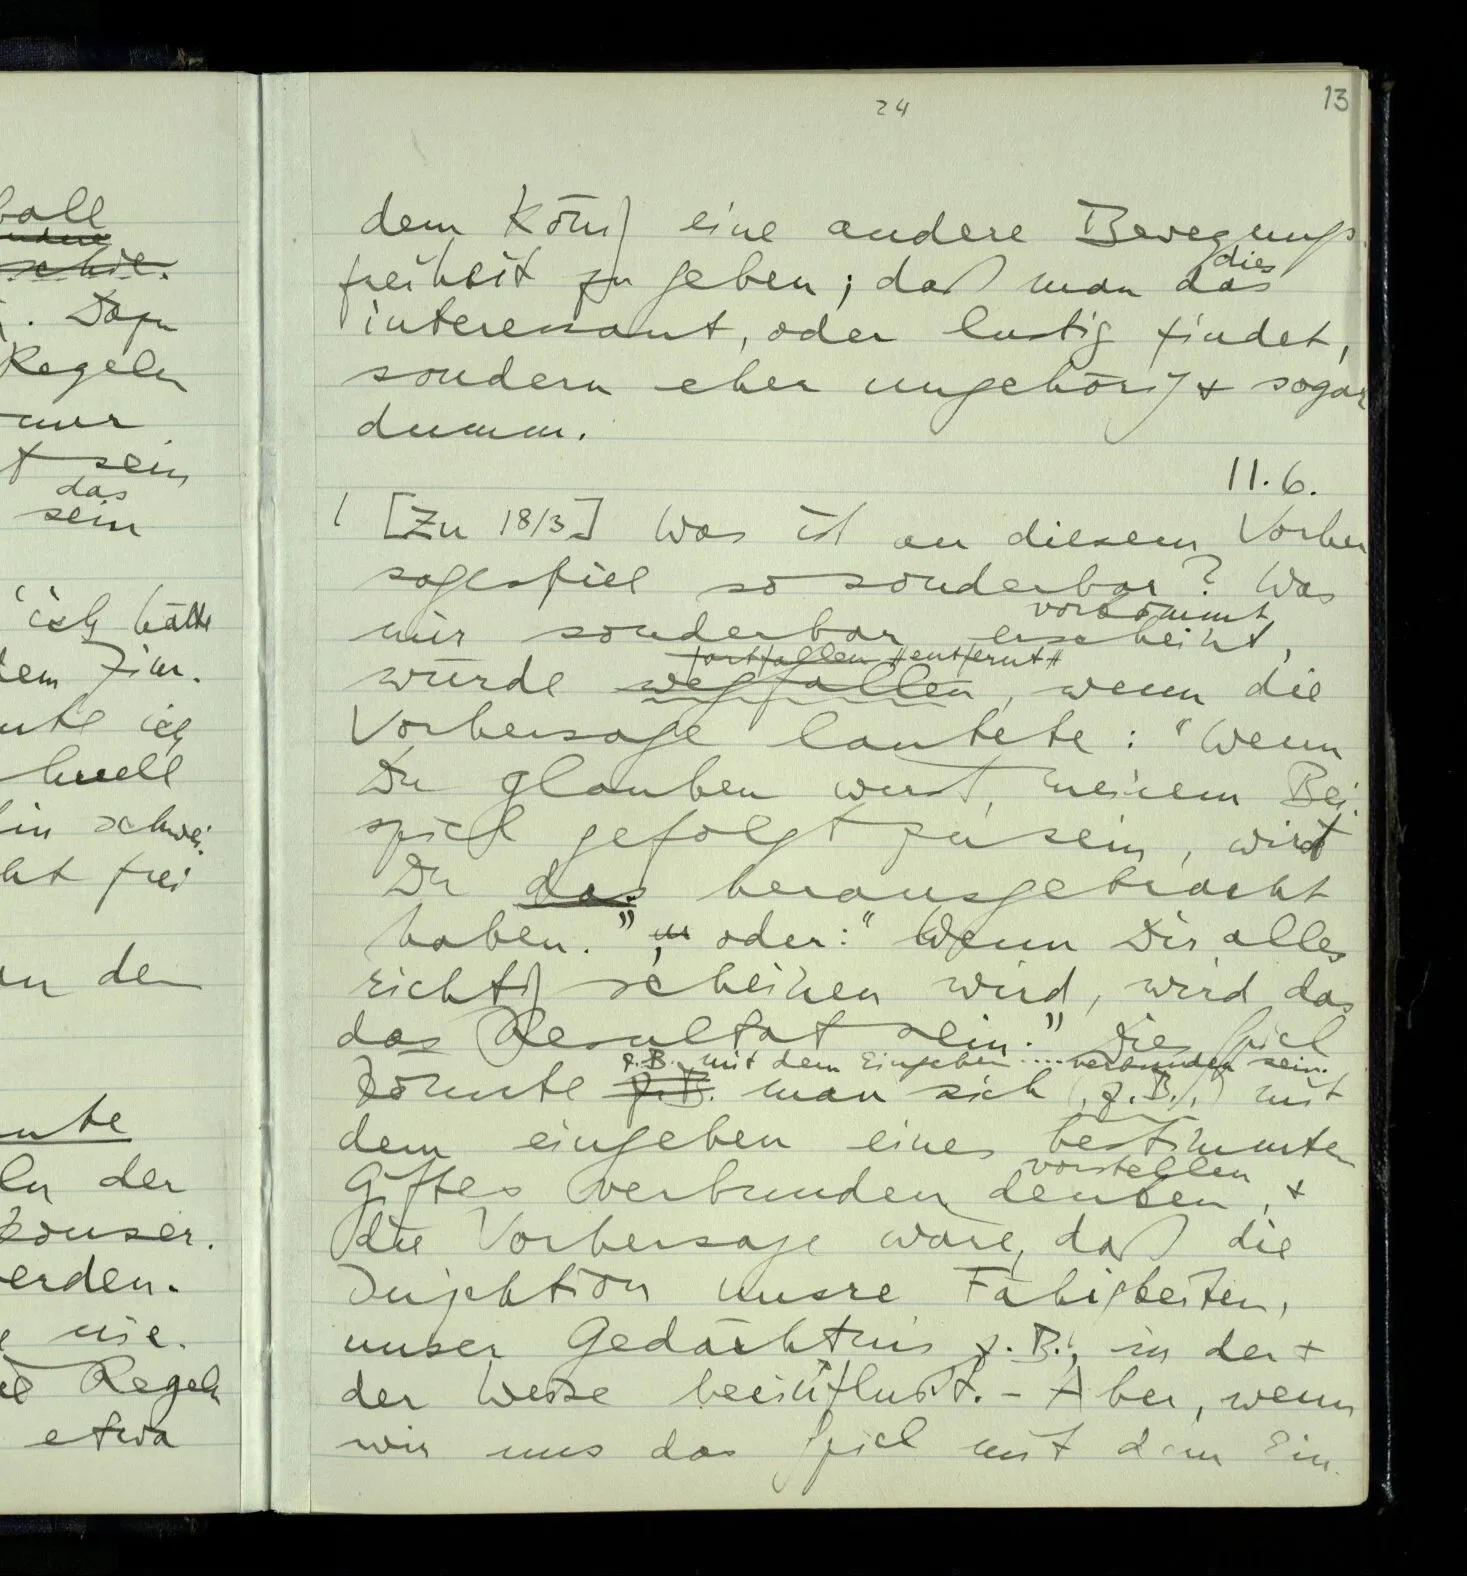 24
13
ball
. Dazu
Regeln
nur
t sein
das
sein
"ich hätte
dem Zim-
ich
schnell
hin schwei-
frei
an den
der
konser-
werden.
nie.
Regeln
etwa
dem König eine andere Bewegungs
freiheit zu geben; daß man das
dies
interessant, oder lustig findet,
sondern eher ungehörig & sogar
dumm.
11.6.
/ [Zu 18/3] Was ist an diesem Vorher
sagespiel so sonderbar? Was
vorkommt
mir sonderbar erscheint,
fortfallen //entfernt//
würde wegfallen, wenn die
Vorhersage lautete: "Wenn
Du glauben wirst, meinem Bei-
spiel gefolgt zu sein, wirst
Du das herausgebracht
haben." oder: "Wenn Dir alles
richtig scheinen wird, wird das
das Resultat sein." Dies Spiel
z.B. mit dem Eingeben .... verbunden sein.
könnte z.B. man sich (z.B.,) mit
dem eingeben eines bestimmten
vorstellen
Giftes verbunden denken, &
die Vorhersage wäre, daß die
Injektion unsre Fähigkeiten,
unser Gedächtnis z.B., in der &
der Weise beeinflußt. – Aber, wenn
wir uns das Spiel mit dem Ein-